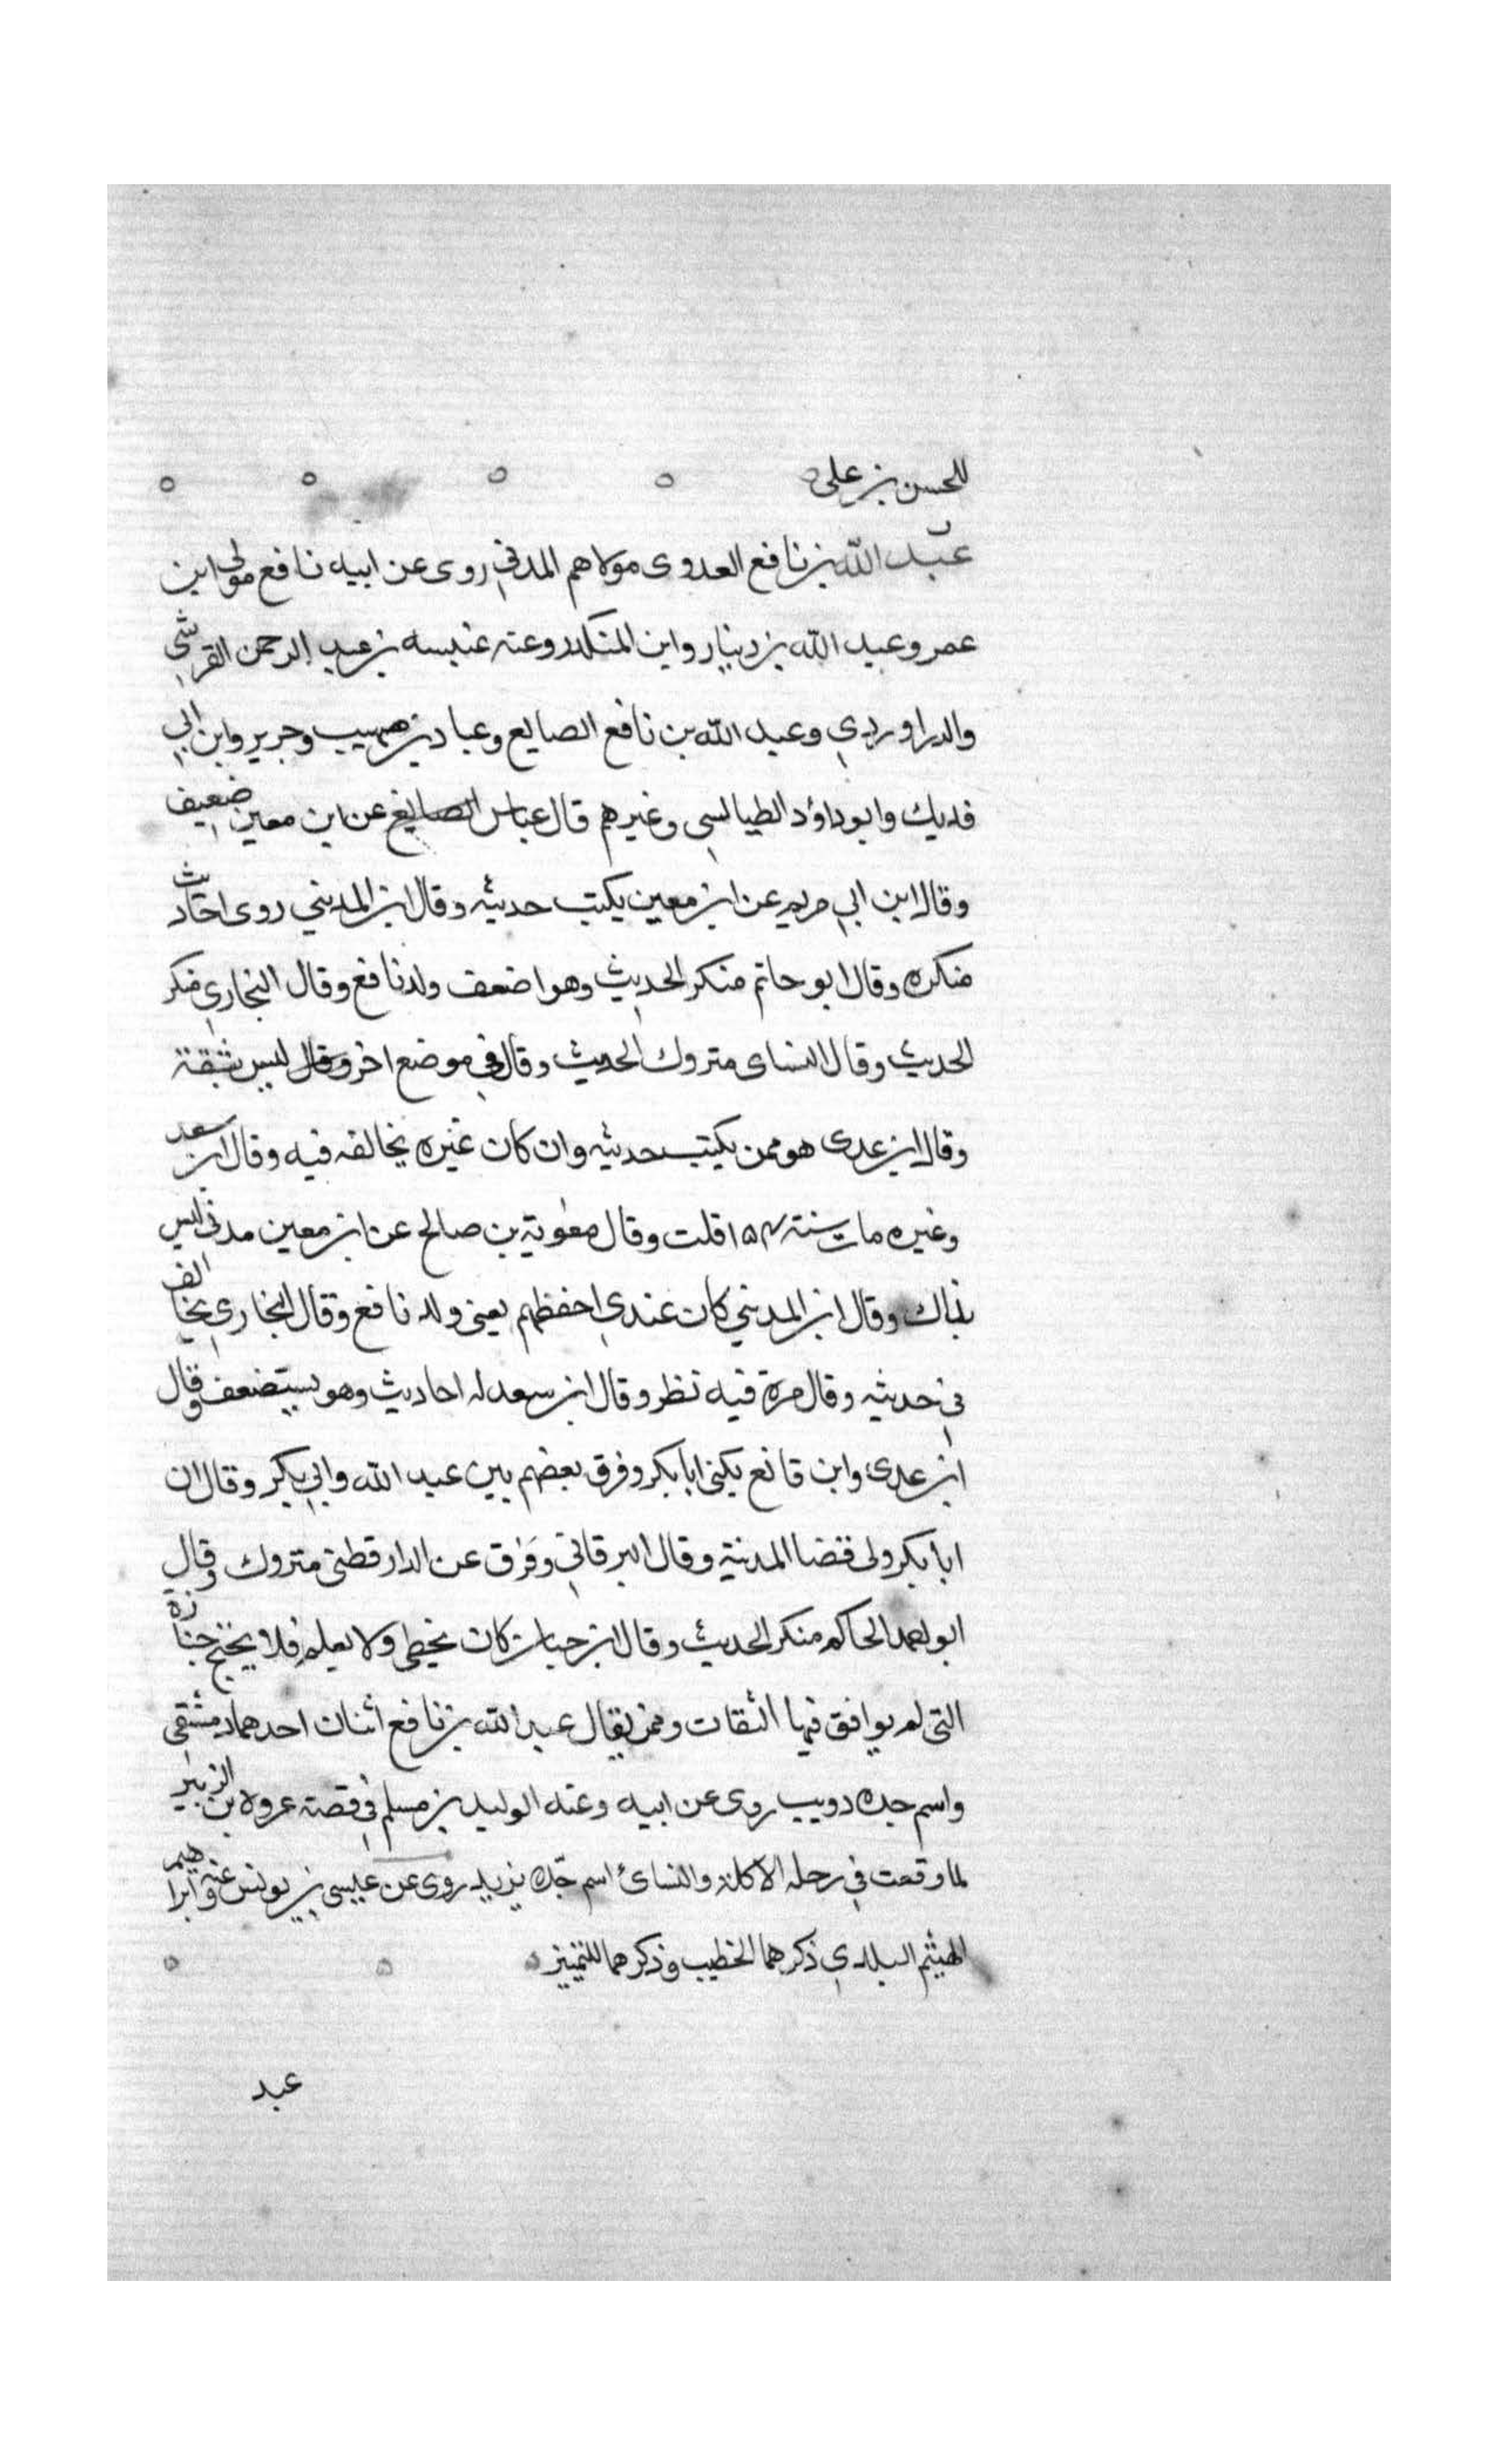 للحسن بن على
ق عبد الله بن نافع العدوى مولاهم المدني روى عن ابيه نافع مولى ابن
عمر وعبد الله بن دينار وابن المنكدر وعنه عنبسه بن عبد الرحمن القرشي
والدراوردي وعبد الله بن نافع الصايع وعباد بن صهيب وجرير وابن ابي
فديك وابو داؤد الطيالسي وغيرهم قال عباس الصايغ عن ابن معين ضعيف
وقال ابن ابي مريم عن ابن معين يكتب حديثه وقال ابن المديني روى احاديث
منكره وقال ابو حاتم منكر الحديث وهو اضعف ولد نافع وقال البخاري منكر
الحديث وقال النساى متروك الحديث وقال في موضع اخر وقال ليس بثقة
وقال ابن عدى هو ممن يكتب حديثه وان كان غيره يخالفه فيه وقال ابن سعد
وغيره مات سنة ١٥٤ قلت وقال معوية بن صالح عن ابن معين مدني ليس
بذاك وقال ابن المديني كان عندي احفظهم يعنى ولد نافع وقال البخاري يخالف
في حديثه وقال مرة فيه نظر وقال ابن سعد له احاديث وهو يستضعف وقال
ابن عدى وابن قانع يكنى ابا بكر وفرق بعضهم بين عبد الله وابي بكر وقال ان
ابا بكر ولى قضا المدنية وقال البرقاني وفرق عن الدارقطنى متروك وقال
ابو احمد الحاكم منكر الحديث وقال ابن حبان كان يخطى ولا يعلم فلا يحتج جنازة
التى لم يوافق فيها الثقات وممن يقال عبد الله بن نافع اثنان احدهما دمشقي
واسم جده دويب روى عن ابيه وعنه الوليد بن مسلم في قصة عروه بن الزبير
لما وقعت في رجله الاكلة والنساى اسم جده يزيد روى عن عيسى بن يونس وعنه ابراهيم
الهيثم البلدي ذكرهما الخطيب وذكرهما للتمييز
عبد